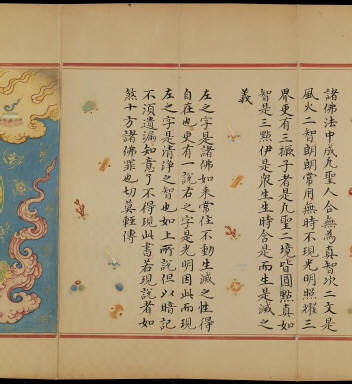 諸佛法中成九聖人合無為真智次二文是
風火二智朗朗常用無時不現光明照耀三
界更有三撅子者是凡聖二境皆圓點真如
智是三點伊是眾生生時含是而生是滅之
義
左之字是諸佛如來常住不動生滅之性得
自在也更有一說右之字是光明因此而現
左之字是清淨之智也如上所說但以暗記
不須遺漏知意了不得現此書若現說者如
煞十方諸佛罪也切莫輕傳